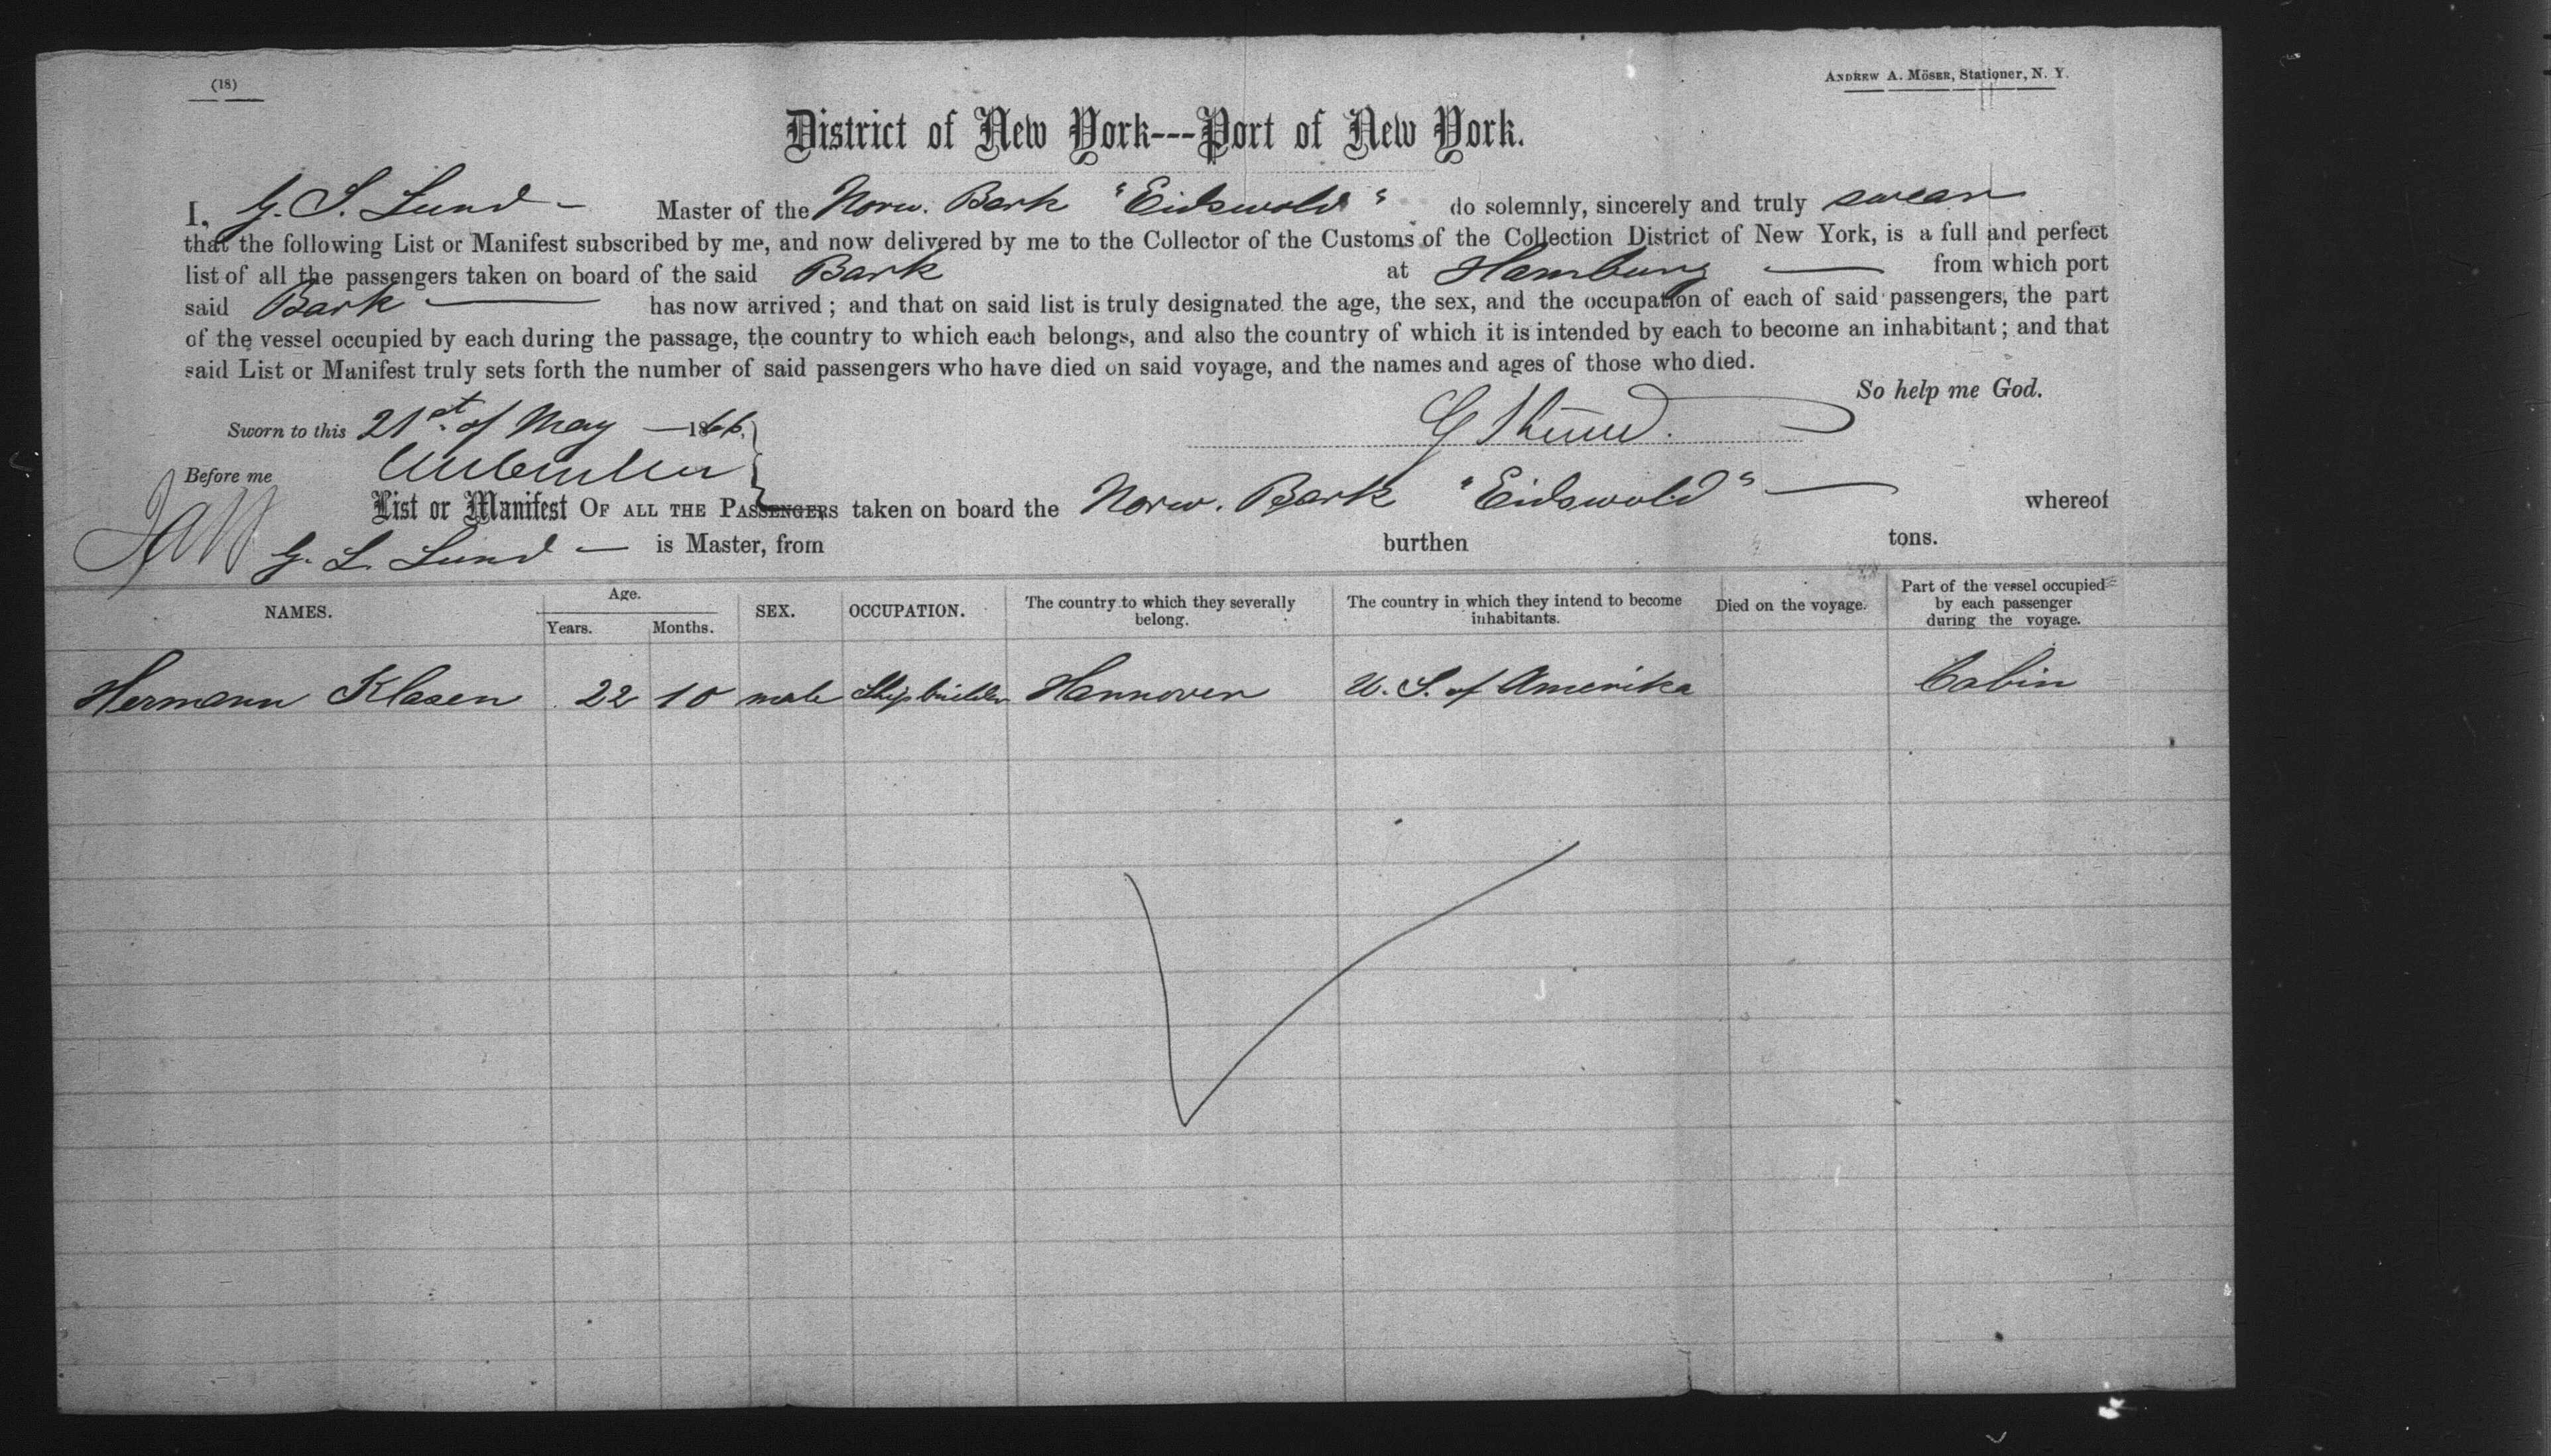 (18)
ANDREW A. MÖSER, Stationer, N. Y.
District of New York---Port of New York.
I, G. S. Lund – Master of the Norw. Bark "Eidswold" do solemnly, sincerely and truly swear
that the following List or Manifest subscribed by me, and now delivered by me to the Collector of the Customs of the Collection District of New York, is a full and perfect
list of all the passengers taken on board of the said Bark at Hamburg — from which port
said Bark — has now arrived; and that on said list is truly designated the age, the sex, and the occupation of each of said passengers, the part
of the vessel occupied by each during the passage, the country to which each belongs, and also the country of which it is intended by each to become an inhabitant; and that
said List or Manifest truly sets forth the number of said passengers who have died on said voyage, and the names and ages of those who died.
So help me God.
Sworn to this 21st. of May — 1866.
Before me
List or Manifest OF ALL THE PASSENGERS taken on board the Norw. Bark "Eidswold" — whereof
G. L. Lund — is Master, from burthen tons.
NAMES. Age. Years. Months. SEX. OCCUPATION. The country to which they severally belong. The country in which they intend to become inhabitants. Died on the voyage. Part of the vessel occupied by each passenger during the voyage.
Hermann Klasen 22 10 male Shipbuilder Hannover U. S. of Amerika Cabin